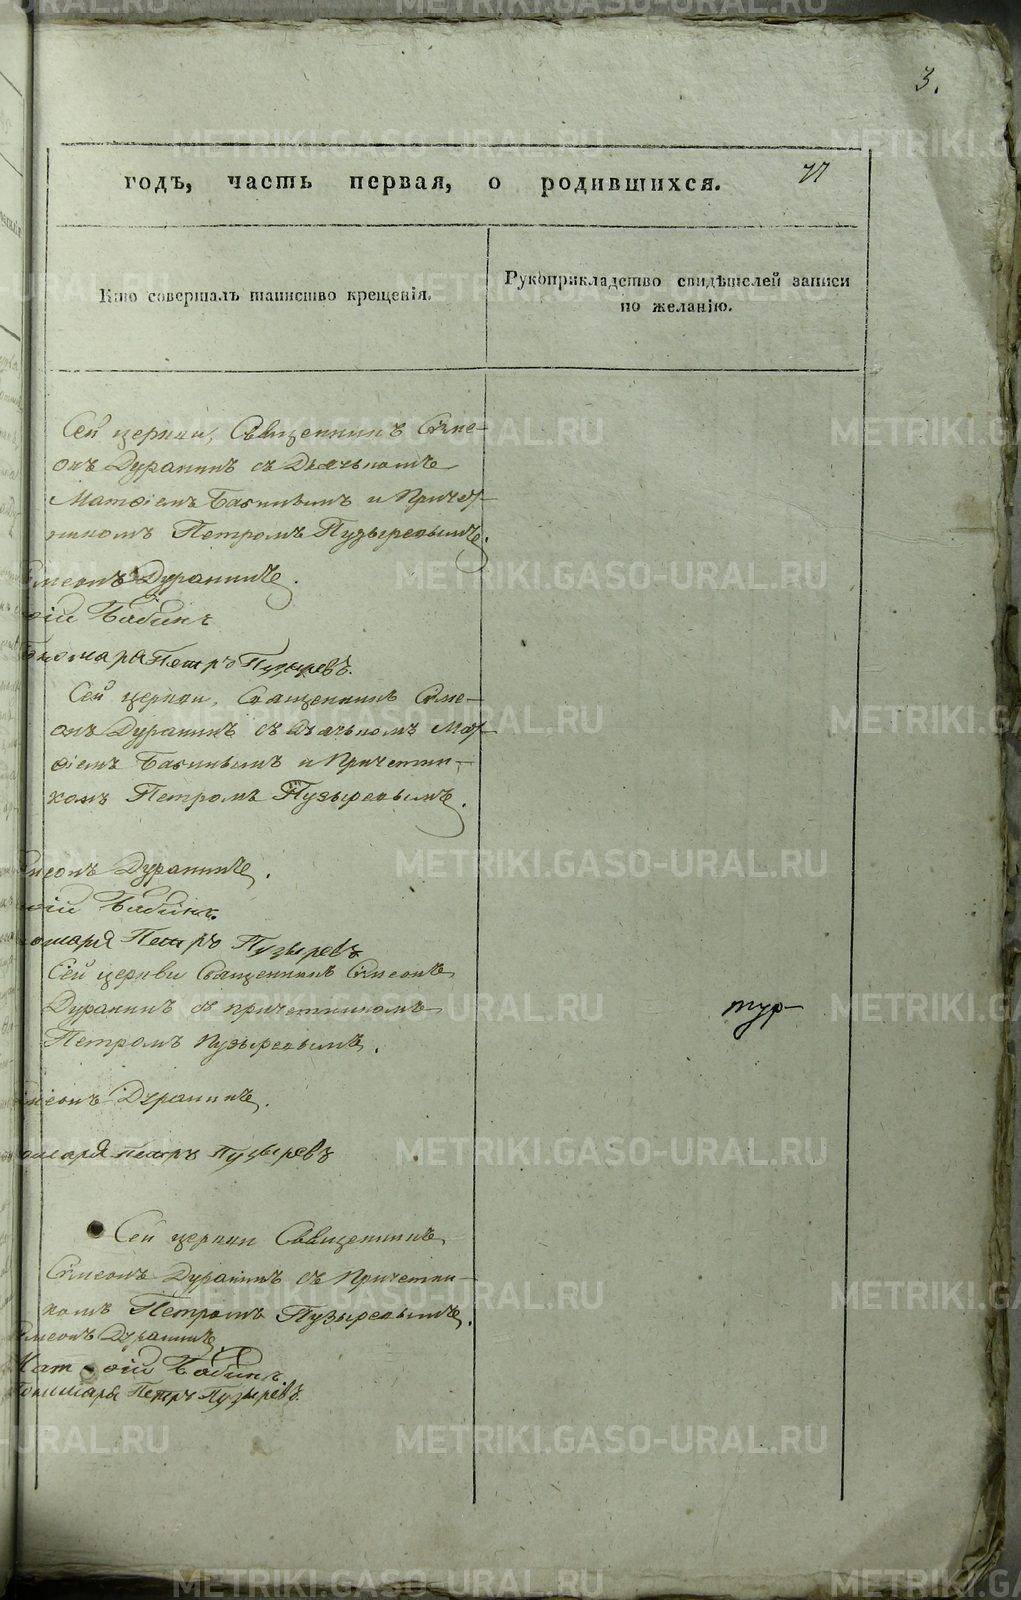 3.
годъ, часть первая, о родившихся.
77
Кто совершалъ таинство крещенія.
Рукоприкладство свидѣтелей записи
по желанію.
Сей церкви, Священникъ Симе-
онъ Дуранинъ съ Дьячькомъ
Матѳіемъ Бабинымъ и Причет-
никомъ Петромъ Пузыревымъ.
Симеонъ Дуранинъ.
ѳій Бабинъ
Пономаря Петръ Пузыревъ.
Сей церкви, Священникъ Симе-
онъ Дуранинъ съ Дьячькомъ Мат-
ѳіемъ Бабинымъ и Причетни-
комъ Петромъ Пузыревымъ.
меонъ Дуранинъ.
ѳій Бабинъ.
омаря Петръ Пузыревъ
Сей церкви Священникъ Симеонъ
Дуранинъ съ причетникомъ
Петромъ Пузыревымъ.
тур-
меонъ Дуранинъ.
омаря Петръ Пузыревъ
Сей церкви Священникъ
Симеонъ Дуранинъ съ Причетни-
комъ Петромъ Пузыревымъ.
Симеонъ Дуранинъ
Мат-ѳій Бабинъ
Пономаря Петръ Пузыревъ.
METRIKI.GASO-URAL.RU